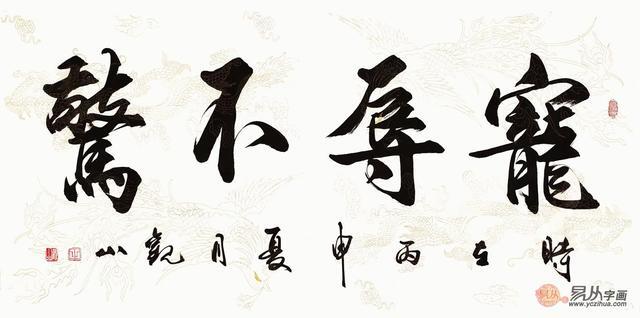 寵辱不驚
時在丙申夏月觀山
易从字画
www.yczihua.com